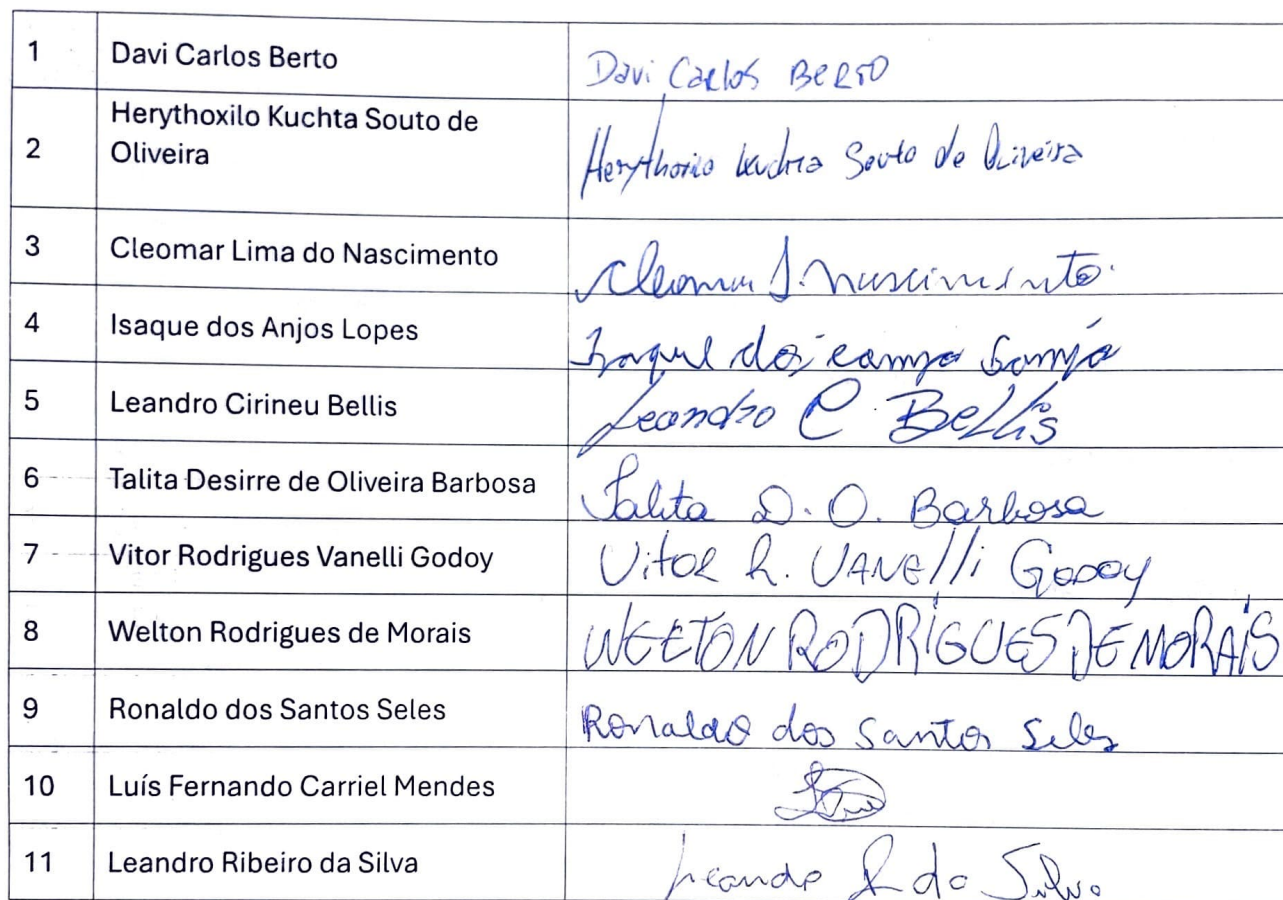 1 Davi Carlos Berto Davi Carlos BERTO
2 Herythoxilo Kuchta Souto de
Oliveira Herythoxilo Kuchta Souto de Oliveira
3 Cleomar Lima do Nascimento Cleomar L. Nascimento.
4 Isaque dos Anjos Lopes
5 Leandro Cirineu Bellis Leandro C Bellis
6 Talita Desirre de Oliveira Barbosa Talita D. O. Barbosa
7 Vitor Rodrigues Vanelli Godoy Vitor R. VANElli Godoy
8 Welton Rodrigues de Morais WELTON RODRIGUES DE MORAIS
9 Ronaldo dos Santos Seles Ronaldo dos Santos Seles
10 Luís Fernando Carriel Mendes
11 Leandro Ribeiro da Silva Leandro R da Silva